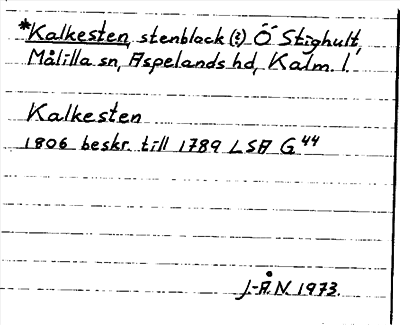 *Kalkesten, stenblock (?) Ö Stighult,
Målilla sn, Aspelands hd, Kalm. l.
Kalkesten
1806 beskr. till 1789 LSA G 44
J.-Å.N 1973.